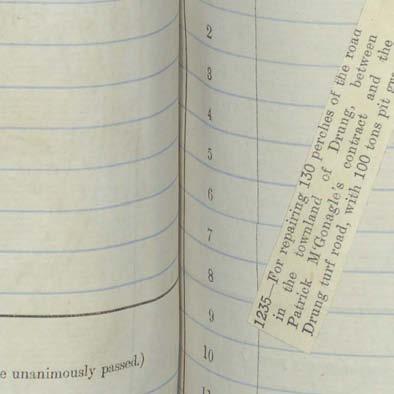 e unanimously passed.)
2
3
4
5
6
7
8
9
10
11
1235—For repairing 130 perches of the road
in the townland of Drung, between
Patrick M'Gonagle's contract and the
Drung turf road, with 100 tons pit